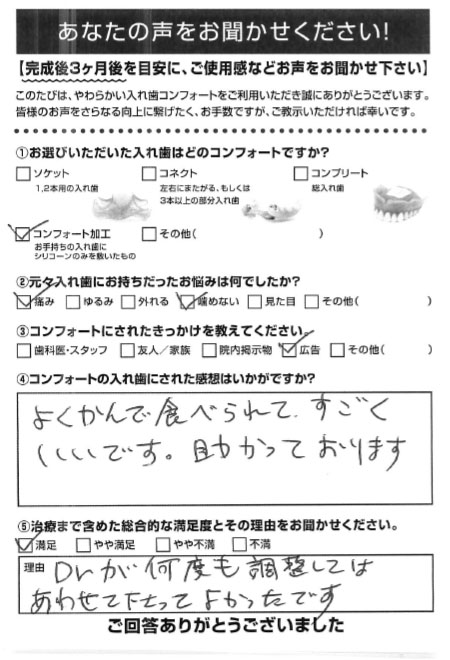 あなたの声をお聞かせください!
【完成後3ヶ月後を目安に、ご使用感などお声をお聞かせ下さい】
このたびは、やわらかい入れ歯コンフォートをご利用いただき誠にありがとうございます。
皆様のお声をさらなる向上に繋げたく、お手数ですが、ご教示いただければ幸いです。
①お選びいただいた入れ歯はどのコンフォートですか?
ソケット
1,2本用の入れ歯
コネクト
左右にまたがる、もしくは
3本以上の部分入れ歯
コンプリート
総入れ歯
コンフォート加工
お手持ちの入れ歯に
シリコーンのみを敷いたもの
その他( )
②元々入れ歯にお持ちだったお悩みは何でしたか?
痛み ゆるみ 外れる 噛めない 見た目 その他( )
③コンフォートにされたきっかけを教えてください。
歯科医・スタッフ 友人/家族 院内掲示物 広告 その他( )
④コンフォートの入れ歯にされた感想はいかがですか?
よくかんで食べられて、すごく
いいです。助かっております
⑤治療まで含めた総合的な満足度とその理由をお聞かせください。
満足 やや満足 やや不満 不満
理由 Drが何度も調整しては
あわせて下さってよかったです
ご回答ありがとうございました